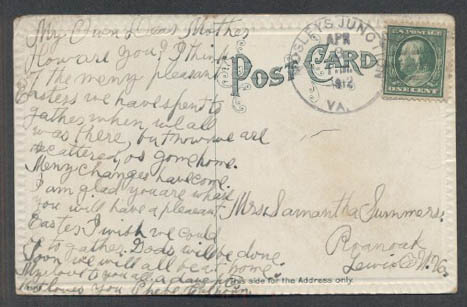 My Own Dear Mother
How are you? I think
of the meny pleasant
Easters we have spent to
gather when we all
was there, but now we are
scattered os gom home.
Meny changes have come.
I am glad you are where
you will have a pleasant
Easter I wish we could
to gather. Gods will be done
Soon we will all be at home.
My love to you all
loves you Phebe
POST CARD
MOSLEYS JUNCTION
APR
1912
VA.
U.S. POSTAGE
ONE CENT
Mrs. Samantha Summers.
Roanoak
Lewis Co W. Va.
This side for the Address only.